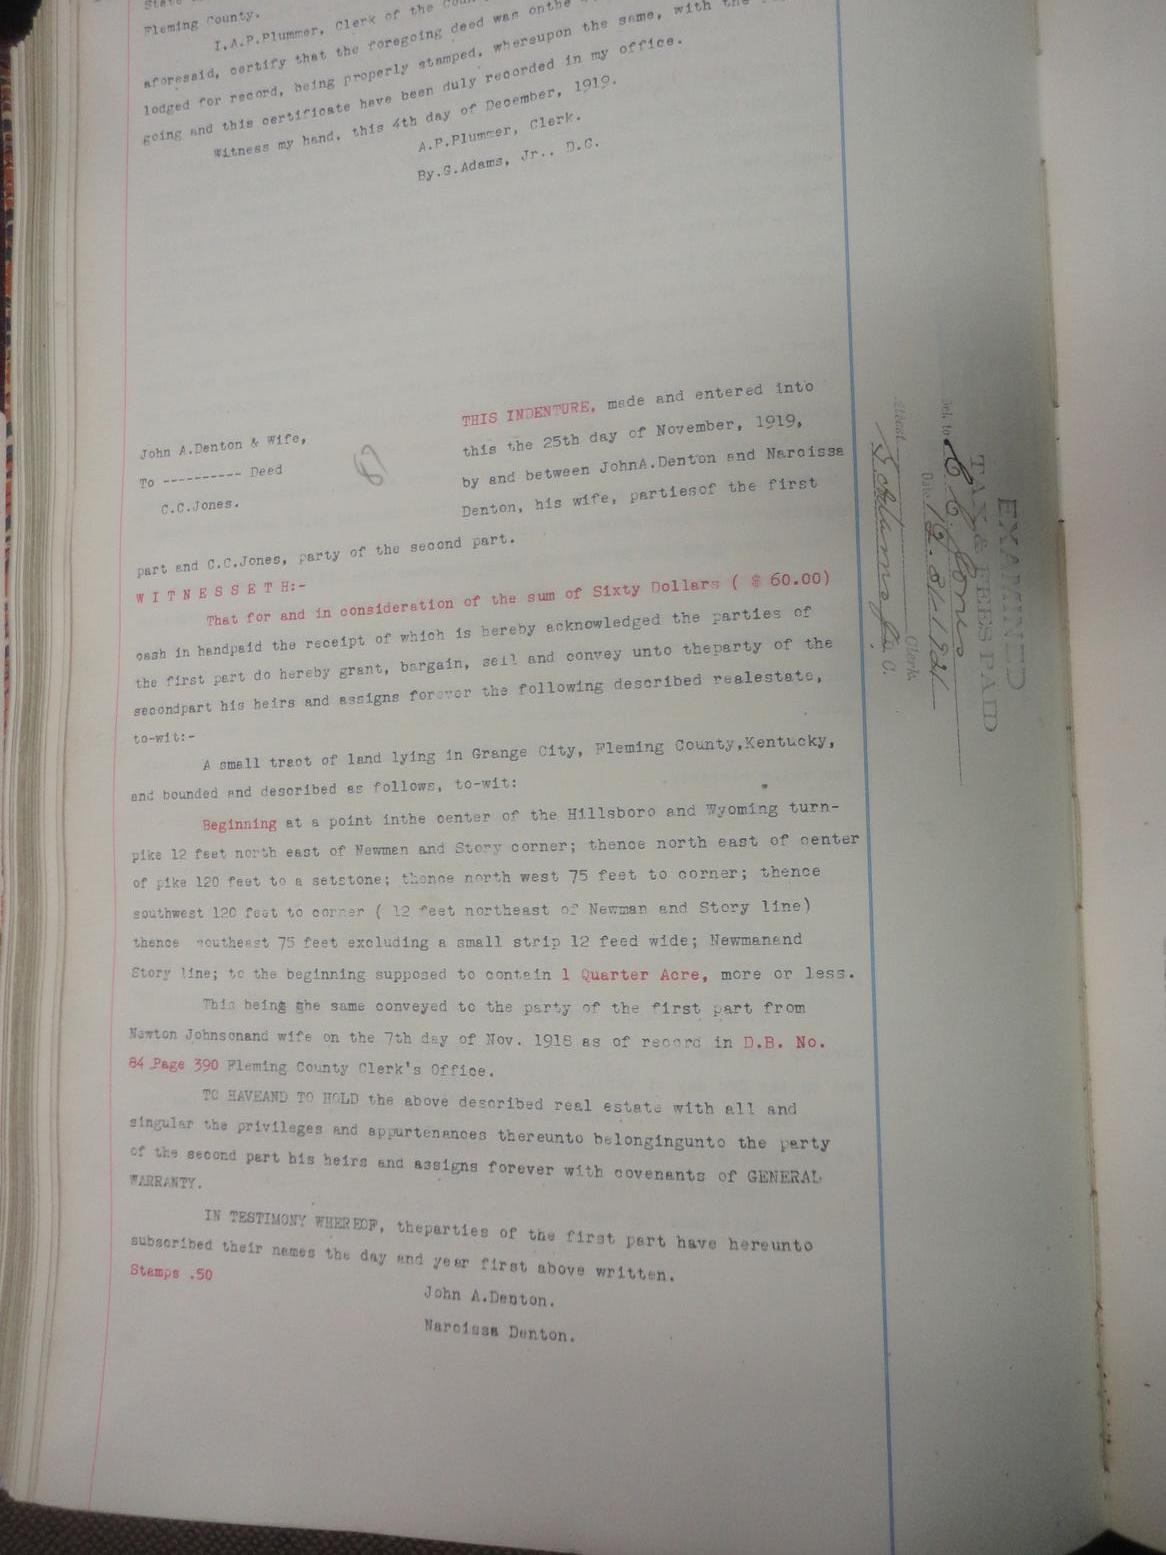 Fleming County.
I.A.P.Plummer, Clerk of the
aforesaid, certify that the foregoing deed was onthe
lodged for record, being properly stamped, whereupon the same, with the
going and this certificate have been duly recorded in my office.
Witness my hand, this 4th day of December, 1919.
A.P.Plummer, Clerk.
By.G.Adams, Jr.. D.C.
John A.Denton & Wife,
To ---------- Deed
C.C.Jones.
THIS INDENTURE, made and entered into
this the 25th day of November, 1919,
by and between JohnA.Denton and Narcissa
Denton, his wife, partiesof the first
part and C.C.Jones, party of the second part.
W I T N E S S E T H:-
That for and in consideration of the sum of Sixty Dollars ( $ 60.00)
cash in handpaid the receipt of which is hereby acknowledged the parties of
the first part do hereby grant, bargain, sell and convey unto theparty of the
secondpart his heirs and assigns forever the following described realestate,
to-wit:-
A small tract of land lying in Grange City, Fleming County,Kentucky,
and bounded and described as follows, to-wit:
Beginning at a point inthe center of the Hillsboro and Wyoming turn-
pike 12 feet north east of Newman and Story corner; thence north east of center
of pike 120 feet to a setstone; thence north west 75 feet to corner; thence
southwest 120 feet to corner ( 12 feet northeast of Newman and Story line)
thence southeast 75 feet excluding a small strip 12 feed wide; Newmanand
Story line; to the beginning supposed to contain 1 Quarter Acre, more or less.
This being ghe same conveyed to the party of the first part from
Newton Johnsonand wife on the 7th day of Nov. 1918 as of record in D.B. No.
84 Page 390 Fleming County Clerk's Office.
TO HAVEAND TO HOLD the above described real estate with all and
singular the privileges and appurtenances thereunto belongingunto the party
of the second part his heirs and assigns forever with covenants of GENERAL
WARRANTY.
IN TESTIMONY WHEREOF, theparties of the first part have hereunto
subscribed their names the day and year first above written.
Stamps .50
John A.Denton.
Narcissa Denton.
EXAMINED
TAX & FEES PAID
Del. to C. C. Jones
Date
Attest
Clerk
D. C.